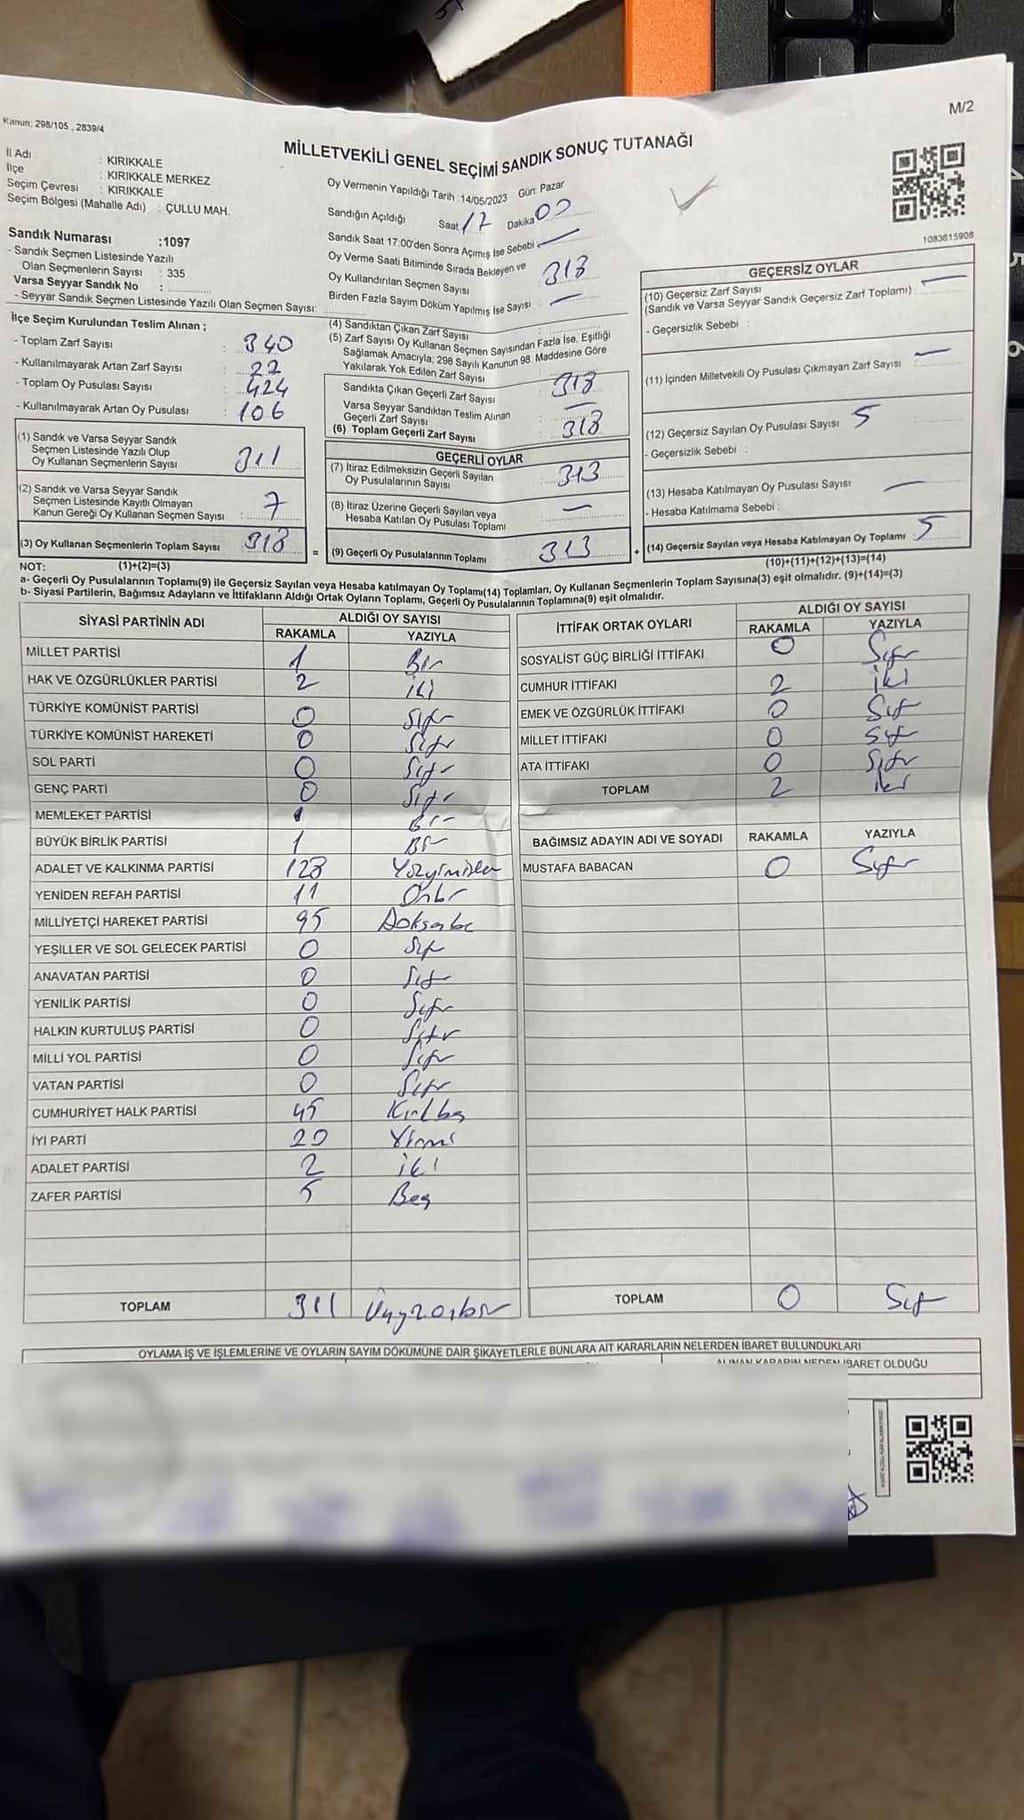 Kanun; 298/105 , 2839/4
M/2
MİLLETVEKİLİ GENEL SEÇİMİ SANDIK SONUÇ TUTANAĞI
İl Adı : KIRIKKALE
İlçe : KIRIKKALE MERKEZ
Seçim Çevresi : KIRIKKALE
Seçim Bölgesi (Mahalle Adı) : ÇULLU MAH.
Sandık Numarası :1097
- Sandık Seçmen Listesinde Yazılı
Olan Seçmenlerin Sayısı : 335
Varsa Seyyar Sandık No :
- Seyyar Sandık Seçmen Listesinde Yazılı Olan Seçmen Sayısı:
Oy Vermenin Yapıldığı Tarih :14/05/2023 Gün: Pazar
Sandığın Açıldığı Saat 17 Dakika 00
Sandık Saat 17:00'den Sonra Açımış İse Sebebi
Oy Verme Saati Bitiminde Sırada Bekleyen ve
Oy Kullandırılan Seçmen Sayısı 318
Birden Fazla Sayım Döküm Yapılmış İse Sayısı : —
1083615908
İlçe Seçim Kurulundan Teslim Alınan ;
- Toplam Zarf Sayısı : 340
- Kullanılmayarak Artan Zarf Sayısı : 22
- Toplam Oy Pusulası Sayısı : 424
- Kullanılmayarak Artan Oy Pusulası : 106
(1) Sandık ve Varsa Seyyar Sandık
Seçmen Listesinde Yazılı Olup
Oy Kullanan Seçmenlerin Sayısı 311
(2) Sandık ve Varsa Seyyar Sandık
Seçmen Listesinde Kayıtlı Olmayan
Kanun Gereği Oy Kullanan Seçmen Sayısı : 7
(3) Oy Kullanan Seçmenlerin Toplam Sayısı 318
(4) Sandıktan Çıkan Zarf Sayısı
(5) Zarf Sayısı Oy Kullanan Seçmen Sayısından Fazla İse, Eşitliği
Sağlamak Amacıyla; 298 Sayılı Kanunun 98. Maddesine Göre
Yakılarak Yok Edilen Zarf Sayısı
Sandıkta Çıkan Geçerli Zarf Sayısı : 318
Varsa Seyyar Sandıktan Teslim Alınan
Geçerli Zarf Sayısı : —
(6) Toplam Geçerli Zarf Sayısı 318
GEÇERLİ OYLAR
(7) İtiraz Edilmeksizin Geçerli Sayılan
Oy Pusulalarının Sayısı : 313
(8) İtiraz Üzerine Geçerli Sayılan veya
Hesaba Katılan Oy Pusulası Toplamı : —
= (9) Geçerli Oy Pusulalarının Toplamı 313
GEÇERSİZ OYLAR
(10) Geçersiz Zarf Sayısı
(Sandık ve Varsa Seyyar Sandık Geçersiz Zarf Toplamı) : —
- Geçersizlik Sebebi :
(11) İçinden Milletvekili Oy Pusulası Çıkmayan Zarf Sayısı : —
(12) Geçersiz Sayılan Oy Pusulası Sayısı : 5
- Geçersizlik Sebebi :
(13) Hesaba Katılmayan Oy Pusulası Sayısı : —
- Hesaba Katılmama Sebebi :
+ (14) Geçersiz Sayılan veya Hesaba Katılmayan Oy Toplamı : 5
NOT: (1)+(2)=(3)
(10)+(11)+(12)+(13)=(14)
a- Geçerli Oy Pusulalarının Toplamı(9) ile Geçersiz Sayılan veya Hesaba katılmayan Oy Toplamı(14) Toplamları, Oy Kullanan Seçmenlerin Toplam Sayısına(3) eşit olmalıdır. (9)+(14)=(3)
b- Siyasi Partilerin, Bağımsız Adayların ve İttifakların Aldığı Ortak Oyların Toplamı, Geçerli Oy Pusulalarının Toplamına(9) eşit olmalıdır.
SİYASİ PARTİNİN ADI ALDIĞI OY SAYISI
RAKAMLA YAZIYLA
MİLLET PARTİSİ 1 Bir
HAK VE ÖZGÜRLÜKLER PARTİSİ 2 iki
TÜRKİYE KOMÜNİST PARTİSİ 0 Sıfır
TÜRKİYE KOMÜNİST HAREKETİ 0 Sıfır
SOL PARTİ 0 Sıfır
GENÇ PARTİ 0 Sıfır
MEMLEKET PARTİSİ 1 Bir
BÜYÜK BİRLİK PARTİSİ 1 Bir
ADALET VE KALKINMA PARTİSİ 128
YENİDEN REFAH PARTİSİ 11 Onbir
MİLLİYETÇİ HAREKET PARTİSİ 95 Doksanbeş
YEŞİLLER VE SOL GELECEK PARTİSİ 0 Sıfır
ANAVATAN PARTİSİ 0 Sıfır
YENİLİK PARTİSİ 0 Sıfır
HALKIN KURTULUŞ PARTİSİ 0 Sıfır
MİLLİ YOL PARTİSİ 0 Sıfır
VATAN PARTİSİ 0 Sıfır
CUMHURİYET HALK PARTİSİ 45 Kırkbeş
İYİ PARTİ 20 Yirmi
ADALET PARTİSİ 2 iki
ZAFER PARTİSİ 5 Beş
TOPLAM 311 Üçyüzonbir
İTTİFAK ORTAK OYLARI ALDIĞI OY SAYISI
RAKAMLA YAZIYLA
SOSYALİST GÜÇ BİRLİĞİ İTTİFAKI 0 Sıfır
CUMHUR İTTİFAKI 2 iki
EMEK VE ÖZGÜRLÜK İTTİFAKI 0 Sıfır
MİLLET İTTİFAKI 0 Sıfır
ATA İTTİFAKI 0 Sıfır
TOPLAM 2 iki
BAĞIMSIZ ADAYIN ADI VE SOYADI RAKAMLA YAZIYLA
MUSTAFA BABACAN 0 Sıfır
TOPLAM 0 Sıfır
OYLAMA İŞ VE İŞLEMLERİNE VE OYLARIN SAYIM DÖKÜMÜNE DAİR ŞİKAYETLERLE BUNLARA AİT KARARLARIN NELERDEN İBARET BULUNDUKLARI
ALINAN KARARIN NEDEN İBARET OLDUĞU